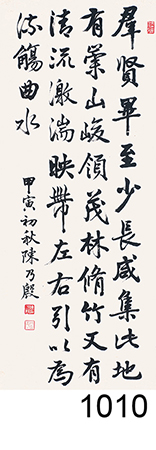 羣賢畢至少長咸集此地
有崇山峻領茂林脩竹又有
清流激湍映帶左右引以為
流觴曲水
甲寅初秋陳乃殷
1010